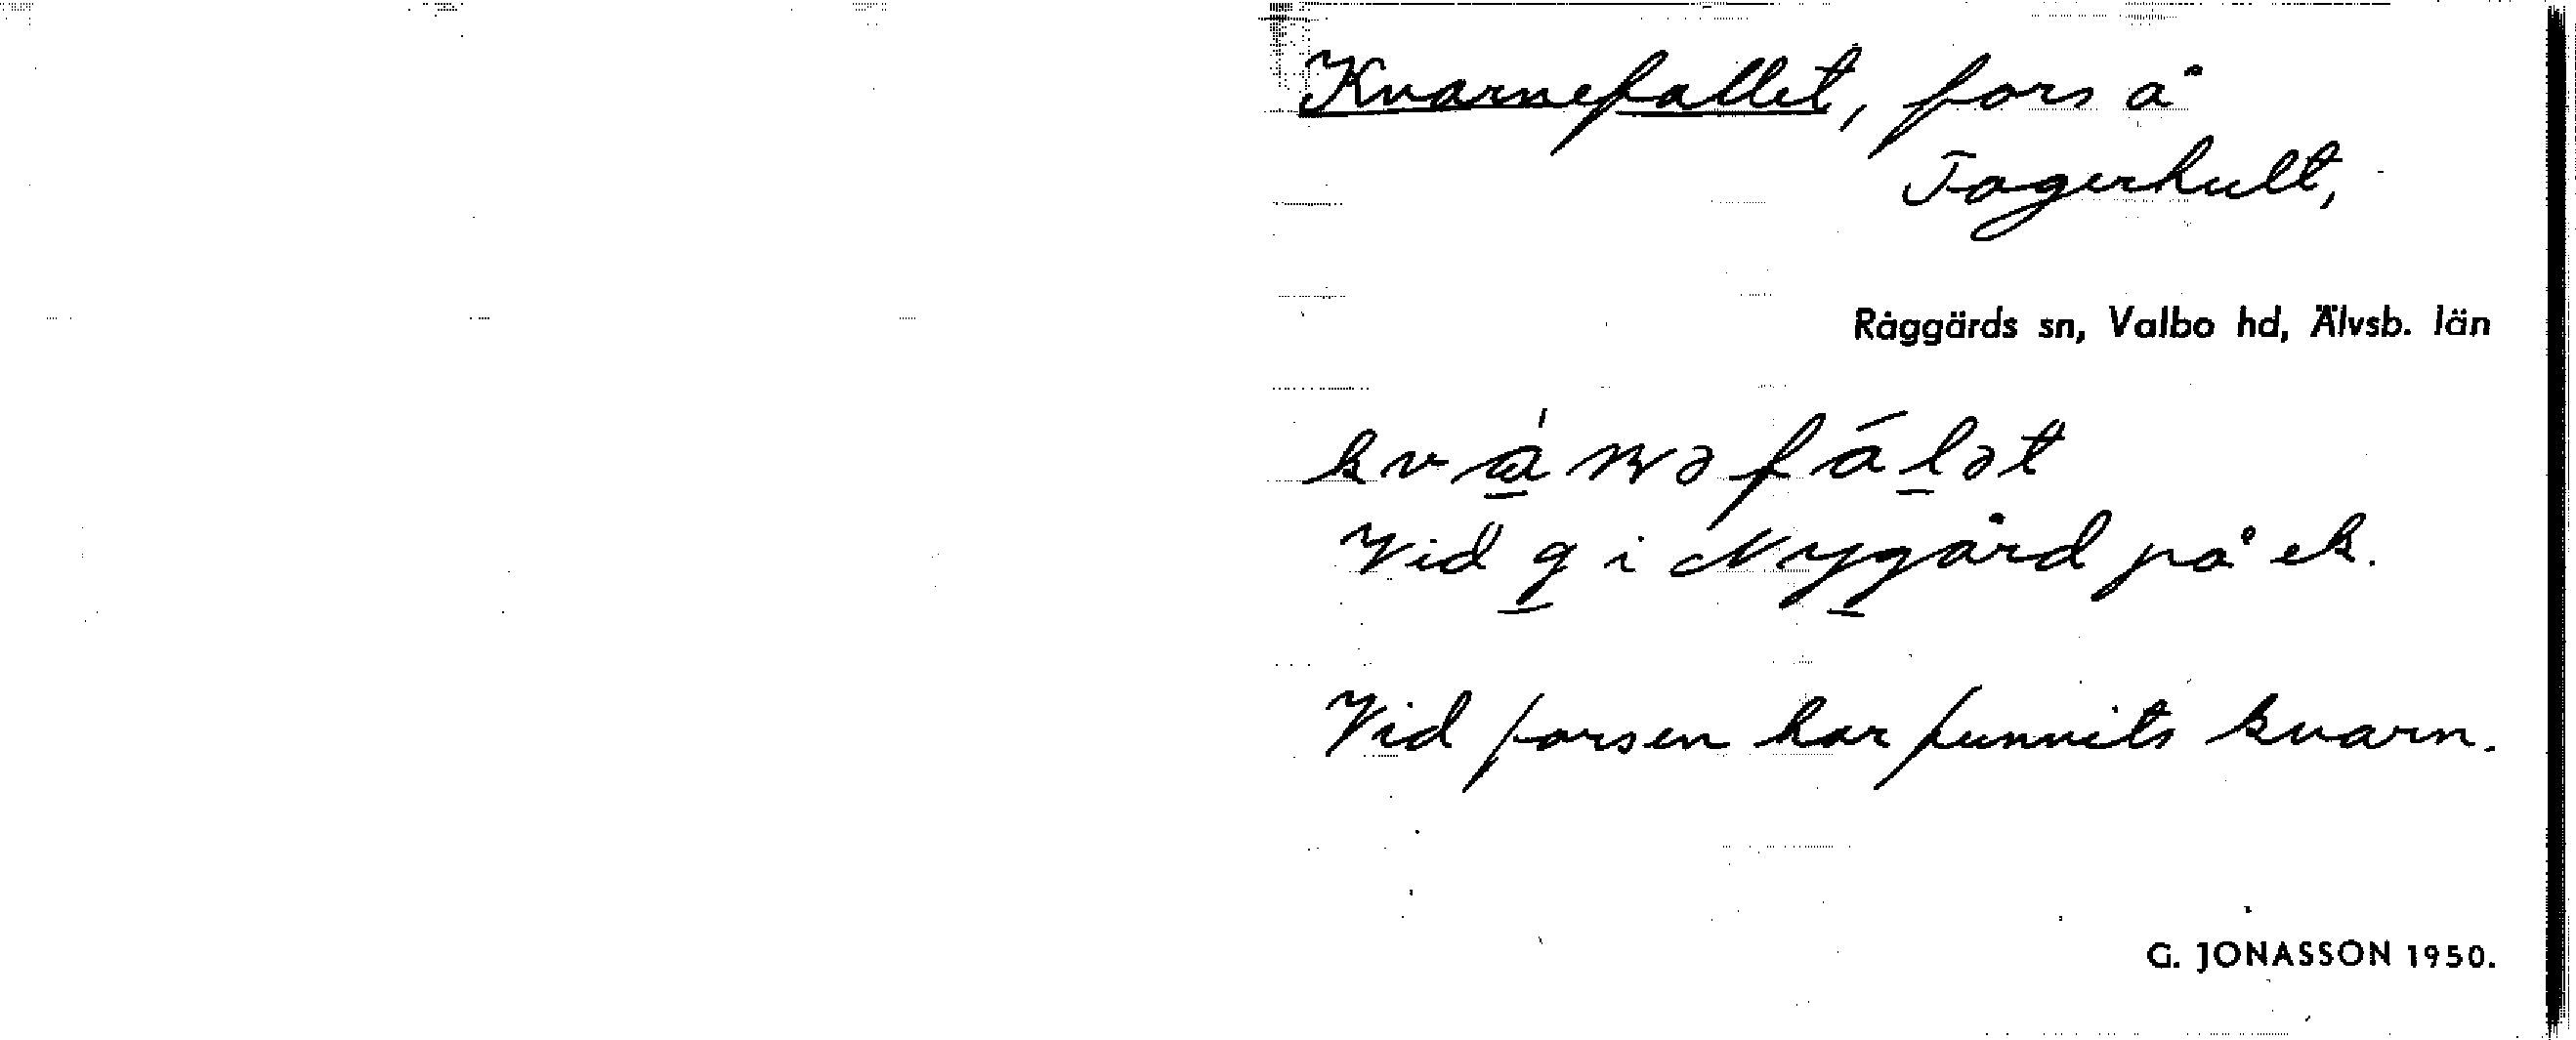 Kvarnefallet, fors å
Fagerhult,
Råggärds sn, Valbo hd, Älvsb. län
Vid g i Nygård på ek.
Vid forsen har funnits kvarn.
G. JONASSON 1950.